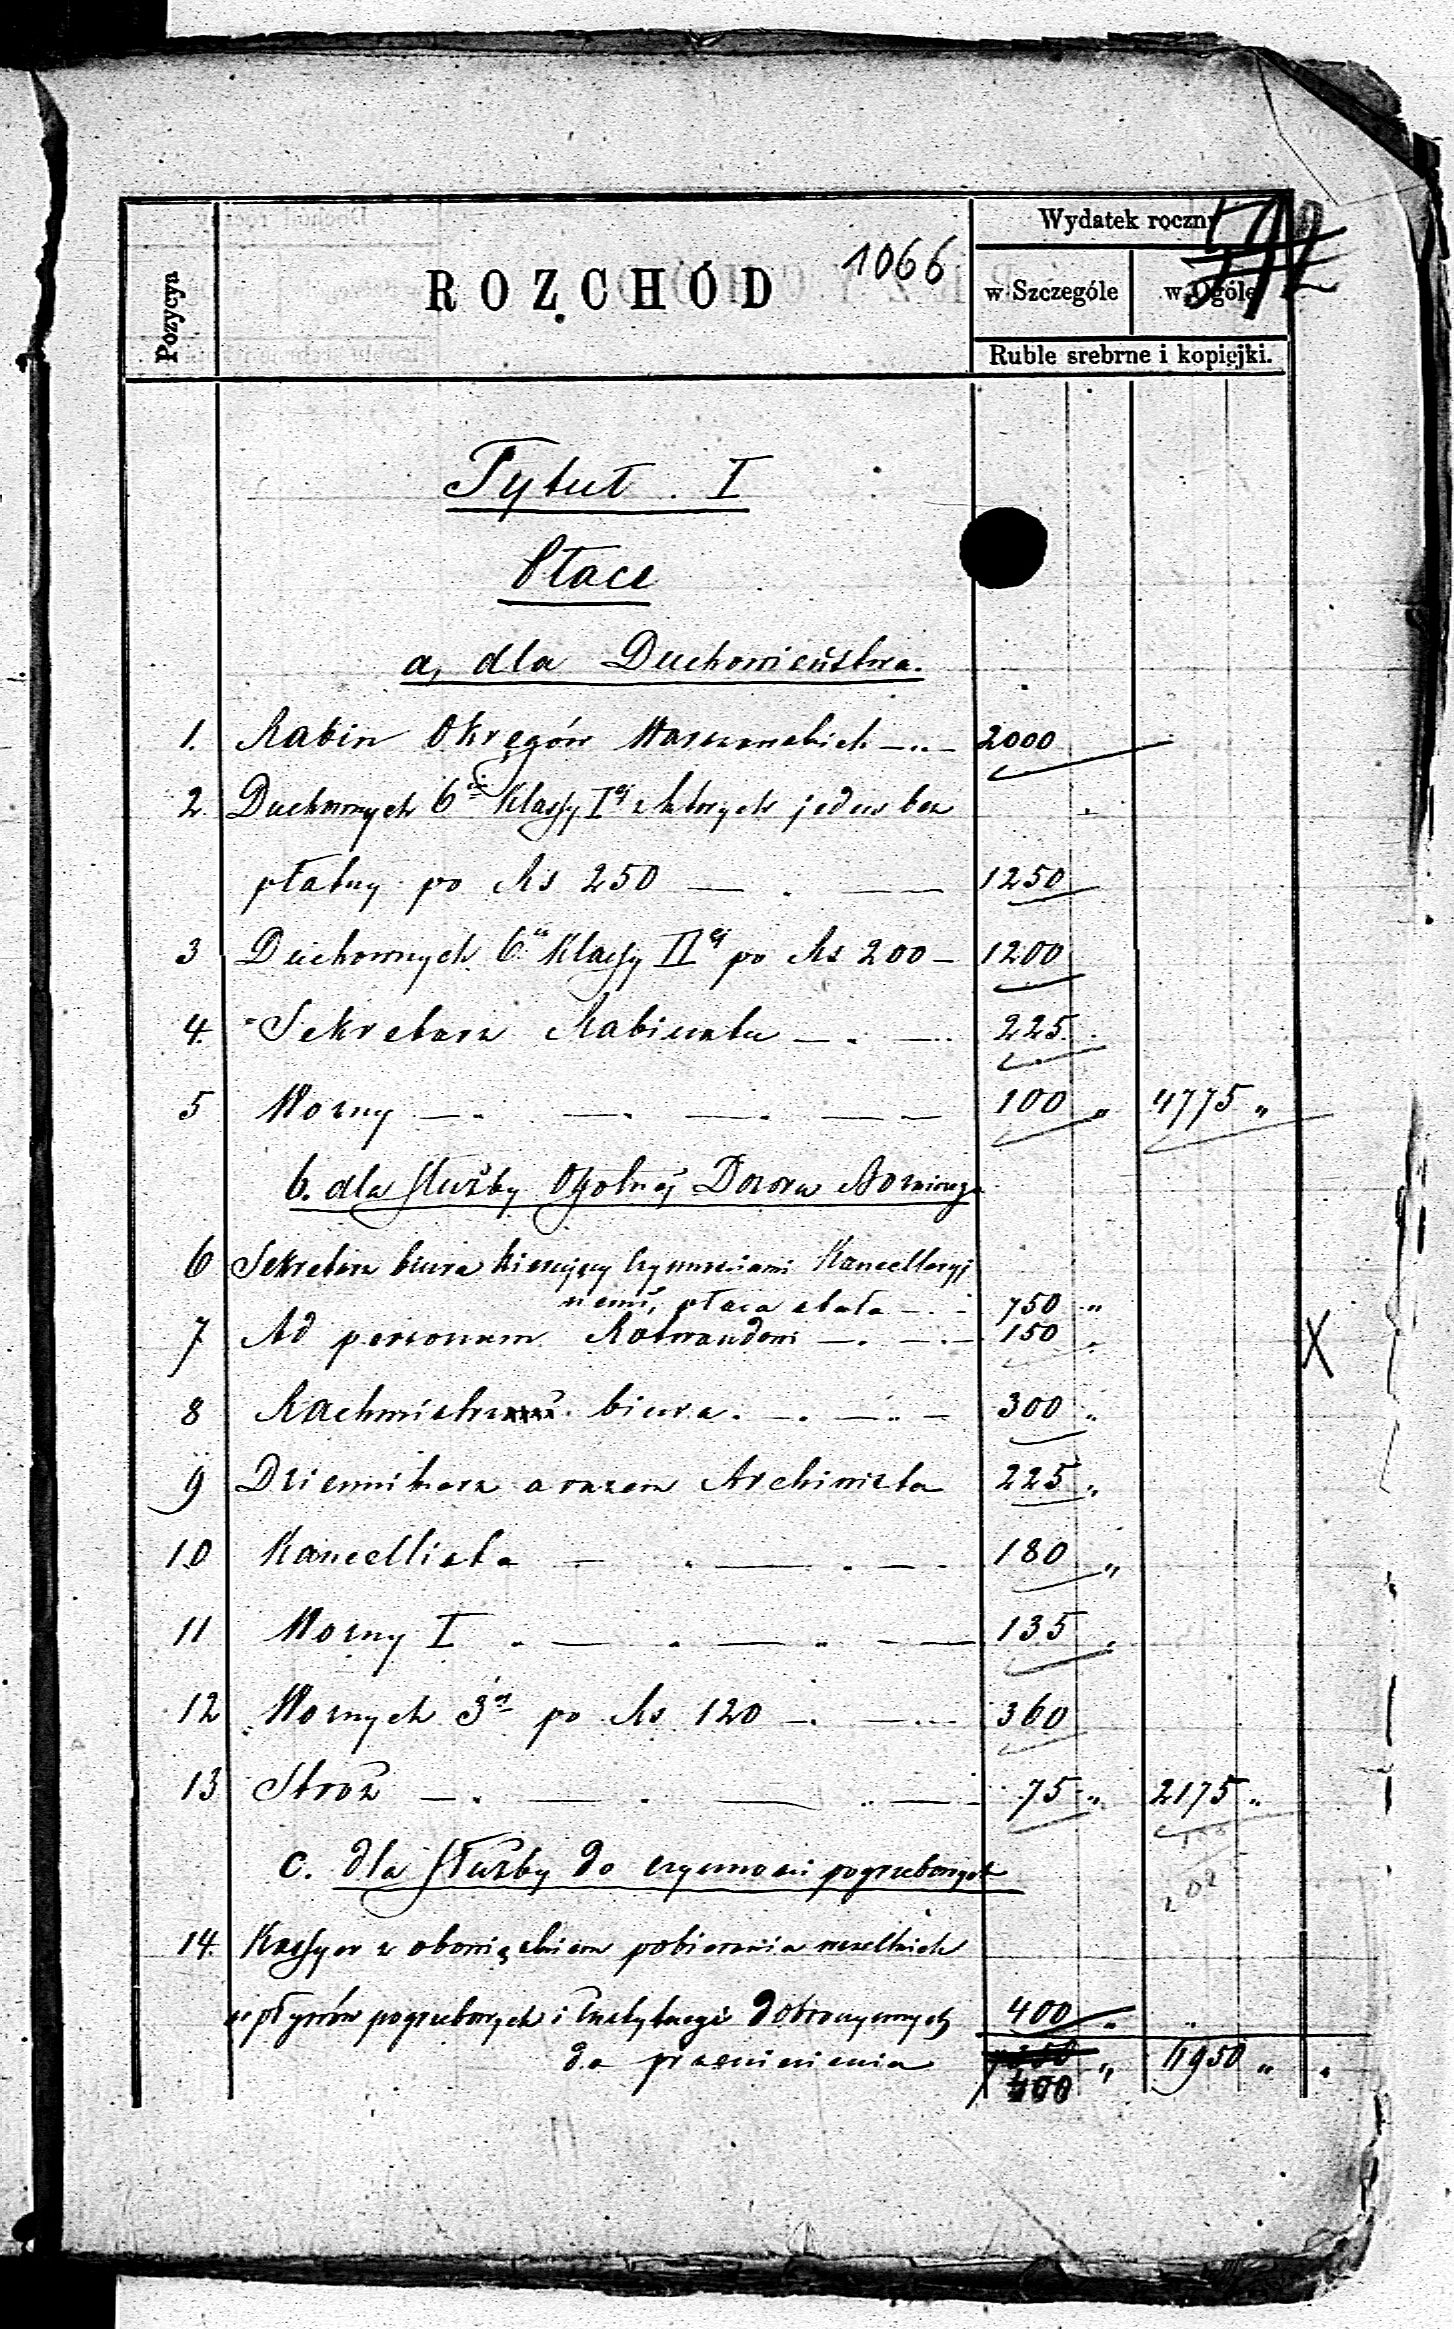 Pozycya
ROZCHÓD
1066
Wydatek roczny
572
w Szczególe
w Ogóle
Ruble srebrne i kopiejki.
Tytuł. I
Płace
a, dla Duchowieństwa.
1. Rabin Okręgów Warszawskich 2000
2. Duchownych 6ciu Klassy Iej z których jeden bez
płatny po Rs 250 1250
3 Duchownych 6iu Klassy IIej po Rs 200 1200
4. Sekretarz Rabinatu 225
5 Woźny 100 " 4775 "
b. dla Służby Ogólnej Dozoru Bożniczego
6 Sekretarz biura kierujący czynnościami Kancellaryj
nemi, płaca stała 750 "
7 Ad personam 150 "
8 Rachmistrz biura. 300 "
9 Dziennikarz a razem Archiwista 225 "
10 Kancellista 180 "
11 Woźny I 135 "
12 Woźnych 3ch po Rs 120 360
13 Stróż 75 " 2175 "
c. dla Służby do czynności pogrzebowych
14. Kassyer z obowiązkiem pobierania wszelkich
wpływów pogrzebowych i Instytucyi Dobroczynnych 400 " "
do przeniesienia 400 " 6950 "
X